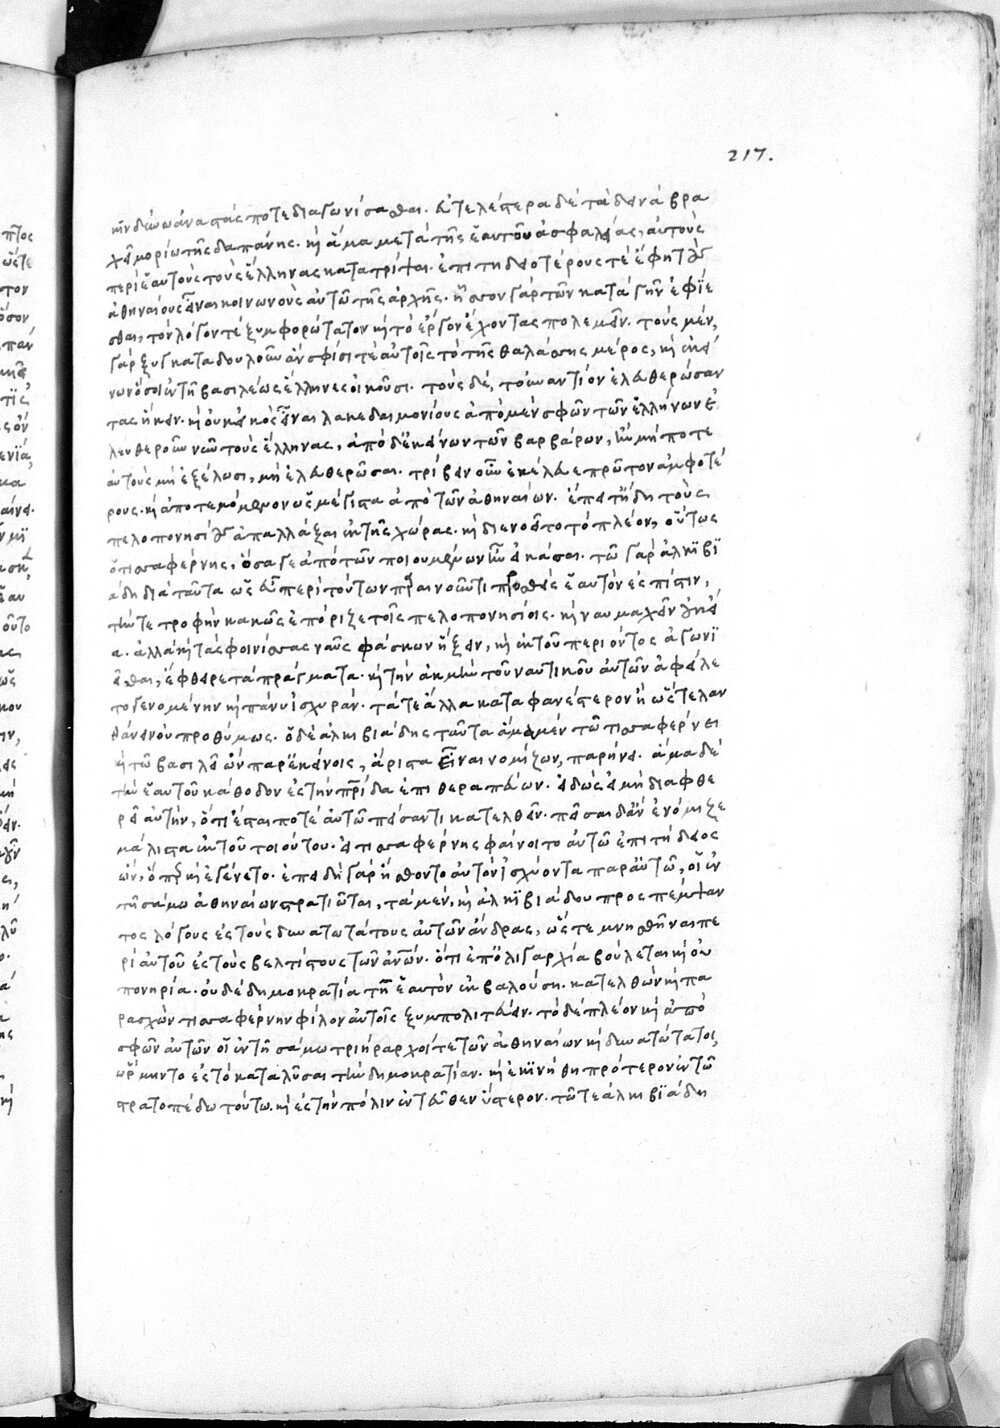 κινδύνω ἀναστάς ποτε διαγωνίσασθαι. εὐτελέστερα δὲ τὰ δεινὰ βρα
χεῖ μορίω τῆς δαπάνης. καὶ ἅμα μετὰ τῆς ἑαυτοῦ ἀσφαλείας, αὐτοὺς
περὶ ἑαυτοὺς τοὺς ἕλληνας κατατρῖψαι. ἐπιτηδειοτέρους τὲ ἔφη τοὺς
ἀθηναίους εἶναι κοινωνοὺς αὐτῶ τῆς ἀρχῆς. ἧσσον γὰρ τῶν κατὰ γῆν ἐφίε
σθαι, τὸν λόγον τὲ ξυμφορώτατον καὶ τὸ ἔργον ἔχοντας πολεμεῖν. τοὺς μὲν,
γὰρ ξυγκαταδουλοῦν ἂν σφίσι τὲ αὐτοῖς τὸ τῆς θαλάσσης μέρος, καὶ ἐκεί
νων ὅσοι ἐν τῆ βασιλέως ἕλληνες οἰκοῦσι. τοὺς δὲ, τοὐναντίον ἐλευθερώσαν
τας ἥκειν. καὶ οὐκ εἰκὸς εἶναι λακεδαιμονίους ἀπὸ μὲν σφῶν τῶν ἑλλήνων ἐ
λευθεροῦν νῦν τοὺς ἕλληνας, ἀπὸ δ' ἐκείνων τῶν βαρβάρων, ἢν μή ποτε
αὐτοὺς μὴ ἐξέλωσι, μὴ ἐλευθερῶσαι. τρίβειν οὖν ἐκέλευε πρῶτον ἀμφοτέ
ρους. καὶ ἀποτεμόμενον ὡς μέγιστα ἀπὸ τῶν ἀθηναίων. ἔπειτ' ἤδη τοὺς
πελοπονησίους ἀπαλλάξαι ἐκ τῆς χώρας. καὶ διενοεῖτο τὸ πλέον, οὕτως
ὁ τισσαφέρνης, ὅσα γε ἀπὸ τῶν ποιουμένων ἦν εἰκάσαι. τῶ γὰρ ἀλκιβι
άδη διὰ ταῦτα ὡς εὖ περὶ τούτων παραινοῦντι προσθεὶς ἑαυτὸν ἐς πίστιν,
τήν τε τροφὴν κακῶς ἐπόριζε τοῖς πελοπονησίοις. καὶ ναυμαχεῖν οὐκ εἴ
α. ἀλλὰ καὶ τὰς φοινίσσας ναῦς φάσκων ἥξειν, καὶ ἐκ τοῦ περιόντος ἀγωνι
εῖσθαι, ἔφθειρε τὰ πράγματα. καὶ τὴν ἀκμὴν τοῦ ναυτικοῦ αὐτῶν ἀφείλε
το γενομένην καὶ πάνυ ἰσχυράν. τά τε ἄλλα καταφανέστερον ἢ ὥστε λαν
θάνειν οὐ προθύμως. ὁ δὲ ἀλκιβιάδης ταῦτα ἅμα μὲν τῶ τισσαφέρνει
καὶ τῶ βασιλεῖ ὢν παρ' ἐκείνοις, ἄριστα εἶναι νομίζων, παρήνει. ἅμα δὲ
τὴν ἑαυτοῦ κάθοδον ἐς τὴν πατρίδα ἐπιθεραπεύων. εἰδὼς εἰ μὴ διαφθε
ρεῖ αὐτὴν, ὅτι ἔσται ποτὲ αὐτῶ πείσαντι κατελθεῖν. πεῖσαι δ' ἂν ἐνόμιζε
μάλιστα ἐκ τοῦ τοιούτου. εἰ τισσαφέρνης φαίνοιτο αὐτῶ ἐπιτήδειος
ὤν, ὅπερ καὶ ἐγένετο. ἐπειδὴ γὰρ ἤσθοντο αὐτὸν ἰσχύοντα παρ' αὐτῶ, οἱ ἐν
τῆ σάμω ἀθηναίων στρατιῶται, τὰ μὲν, καὶ ἀλκιβιάδου προσπέμψαν
τος λόγους ἐς τοὺς δυνατωτάτους αὐτῶν ἄνδρας, ὥστε μνησθῆναι πε
ρὶ αὐτοῦ ἐς τοὺς βελτίστους τῶν ἀνθρώπων. ὅτι ἐπ' ὀλιγαρχία βούλεται καὶ οὐ
πονηρία. οὐδὲ δημοκρατία τῆ ἑαυτὸν ἐκβαλούση. κατελθὼν καὶ πα
ρασχὼν τισσαφέρνην φίλον αὐτοῖς ξυμπολιτεύειν. τὸ δὲ πλέον καὶ ἀπὸ
σφῶν αὐτῶν οἱ ἐν τῆ σάμω τριήραρχοί τε τῶν ἀθηναίων καὶ δυνατώτατοι,
ὥρμηντο ἐς τὸ καταλῦσαι τὴν δημοκρατίαν. καὶ ἐκινήθη πρότερον ἐν τῶ
στρατοπέδω τοῦτο. καὶ ἐς τὴν πόλιν ἐντεῦθεν ὕστερον. τῶ τε ἀλκιβιάδη